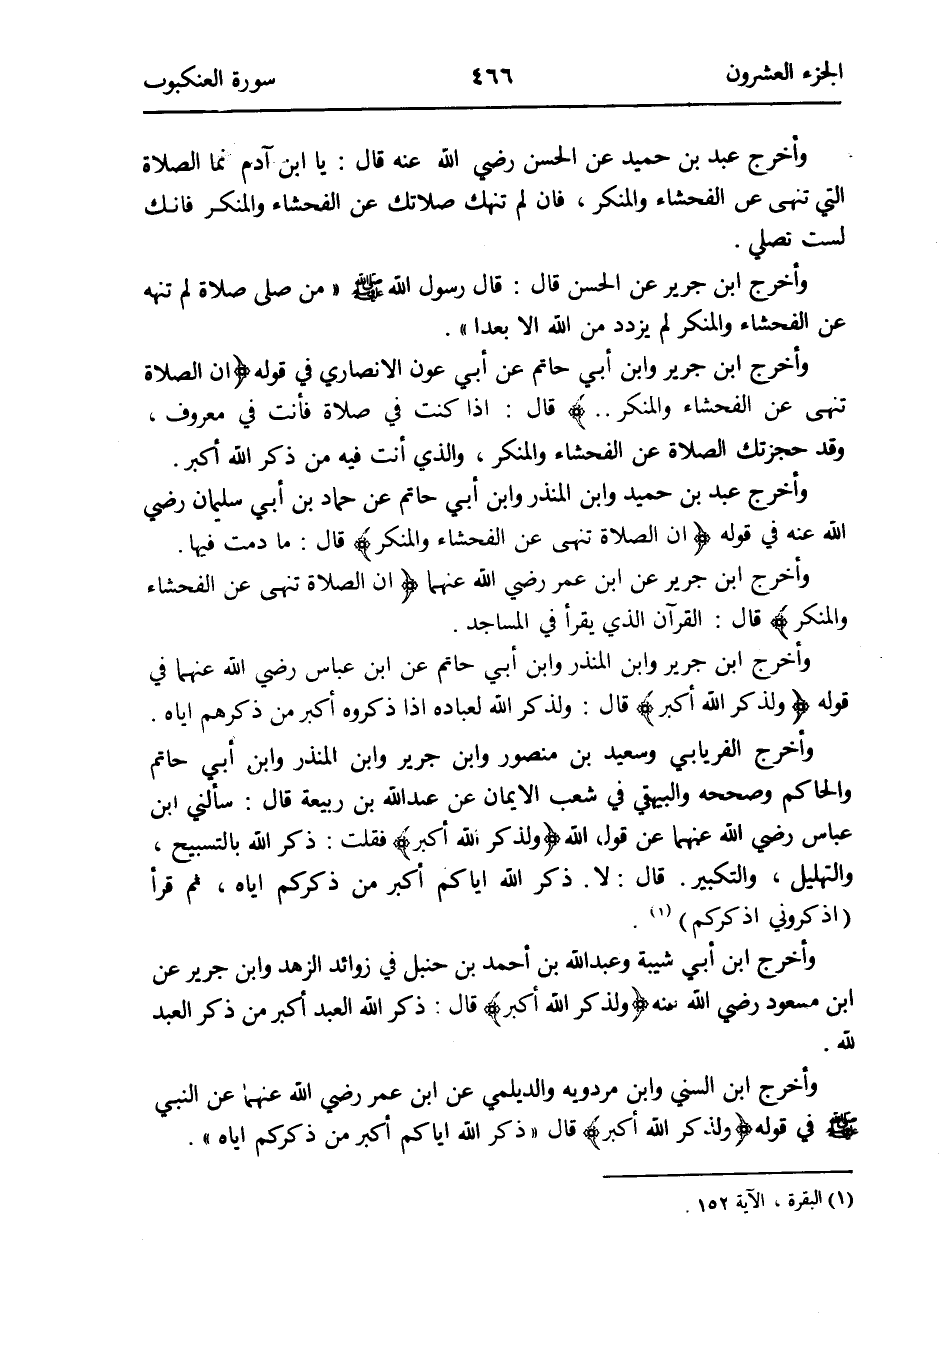 الجزء العشرون ٤٦٦ سورة العنكبوت
وأخرج عبد بن حميد عن الحسن رضي الله عنه قال : يا ابن آدم نما الصلاة
التي تنهى عن الفحشاء والمنكر ، فان لم تنهك صلاتك عن الفحشاء والمنكر فانك
لست تصلي .
وأخرج ابن جرير عن الحسن قال : قال رسول الله ﷺ « من صلى صلاة لم تنهه
عن الفحشاء والمنكر لم يزدد من الله الا بعدا » .
وأخرج ابن جرير وابن أبي حاتم عن أبي عون الانصاري في قوله ﴿ ان الصلاة
تنهى عن الفحشاء والمنكر .. ﴾ قال : اذا كنت في صلاة فأنت في معروف ،
وقد حجزتك الصلاة عن الفحشاء والمنكر ، والذي أنت فيه من ذكر الله أكبر .
وأخرج عبد بن حميد وابن المنذر وابن أبي حاتم عن حماد بن أبي سليمان رضي
الله عنه في قوله ﴿ ان الصلاة تنهى عن الفحشاء والمنكر ﴾ قال : ما دمت فيها .
وأخرج ابن جرير عن ابن عمر رضي الله عنهما ﴿ ان الصلاة تنهى عن الفحشاء
والمنكر ﴾ قال : القرآن الذي يقرأ في المساجد .
وأخرج ابن جرير وابن المنذر وابن أبي حاتم عن ابن عباس رضي الله عنهما في
قوله ﴿ ولذكر الله أكبر ﴾ قال : ولذكر الله لعباده اذا ذكروه أكبر من ذكرهم اياه .
وأخرج الفريابي وسعيد بن منصور وابن جرير وابن المنذر وابن أبي حاتم
والحاكم وصححه والبيهقي في شعب الايمان عن عبدالله بن ربيعة قال : سألني ابن
عباس رضي الله عنهما عن قول الله ﴿ ولذكر الله أكبر ﴾ فقلت : ذكر الله بالتسبيح ،
والتهليل ، والتكبير . قال : لا . ذكر الله اياكم أكبر من ذكركم اياه ، ثم قرأ
( اذكروني اذكركم ) (١) .
وأخرج ابن أبي شيبة وعبدالله بن أحمد بن حنبل في زوائد الزهد وابن جرير عن
ابن مسعود رضي الله عنه ﴿ ولذكر الله أكبر ﴾ قال : ذكر الله العبد أكبر من ذكر العبد
لله .
وأخرج ابن السني وابن مردويه والديلمي عن ابن عمر رضي الله عنهما عن النبي
ﷺ في قوله ﴿ ولذكر الله أكبر ﴾ قال « ذكر الله اياكم أكبر من ذكركم اياه » .
(١) البقرة ، الآية ١٥٢ .